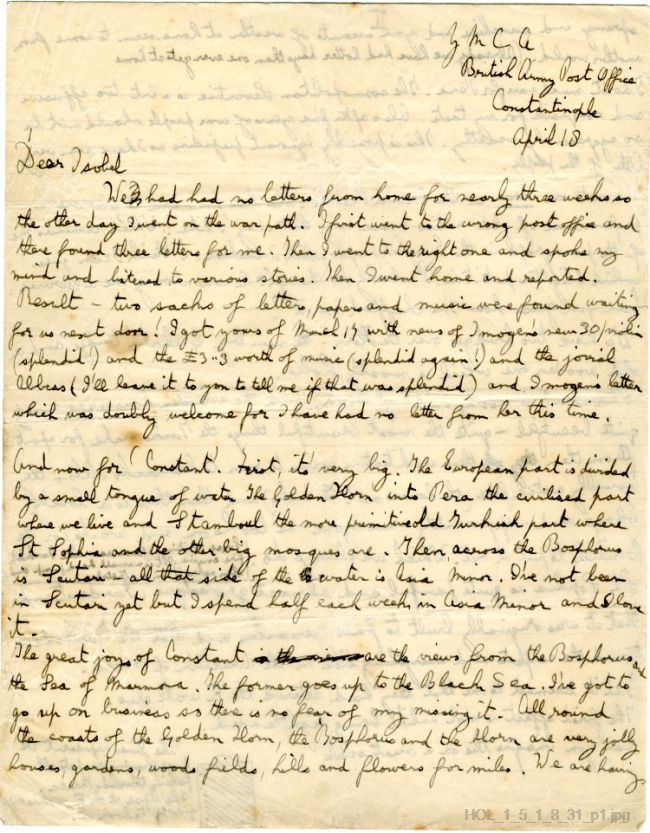 Y M C A
British Army Post Office
Constantinople
April 18
Dear Isobel
We had had no letters from home for nearly three weeks so
the other day I went on the war path. I first went to the wrong post office and
there found three letters for me. Then I went to the right one and spoke my
mind and listened to various stories. Then I went home and reported.
Result – two sacks of letters, papers and music were found waiting
for us next door! I got yours of March 17 with news of Imogen's new 30/ violin
(splendid!) and the £3"3 worth of music (splendid again!) and the jovial
(I'll leave it to you to tell me if that was splendid) and Imogen's letter
which was doubly welcome for I have had no letter from her this time.
And now for 'Constant'. First, it's very big. The European part is divided
by a small tongue of water The Golden Horn into Pera the civilised part
where we live and Stamboul the more primitive old Turkish part where
St Sophia and the other big mosques are. Then across the Bosphorus
is Scutari – all that side of the water is Asia Minor. I've not been
in Scutari yet but I spend half each week in Asia Minor and I love
it.
The great joys of Constant are the views from the Bosphorus and
the Sea of Marmora. The former goes up to the Black Sea. I've got to
go up on business so there is no fear of my missing it. All round
the coasts of the Golden Horn, the Bosphorus and the Horn are very jolly
houses, gardens, woods, fields, hills and flowers for miles. We are having
HOL_1_5_1_8_31_p1.jpg